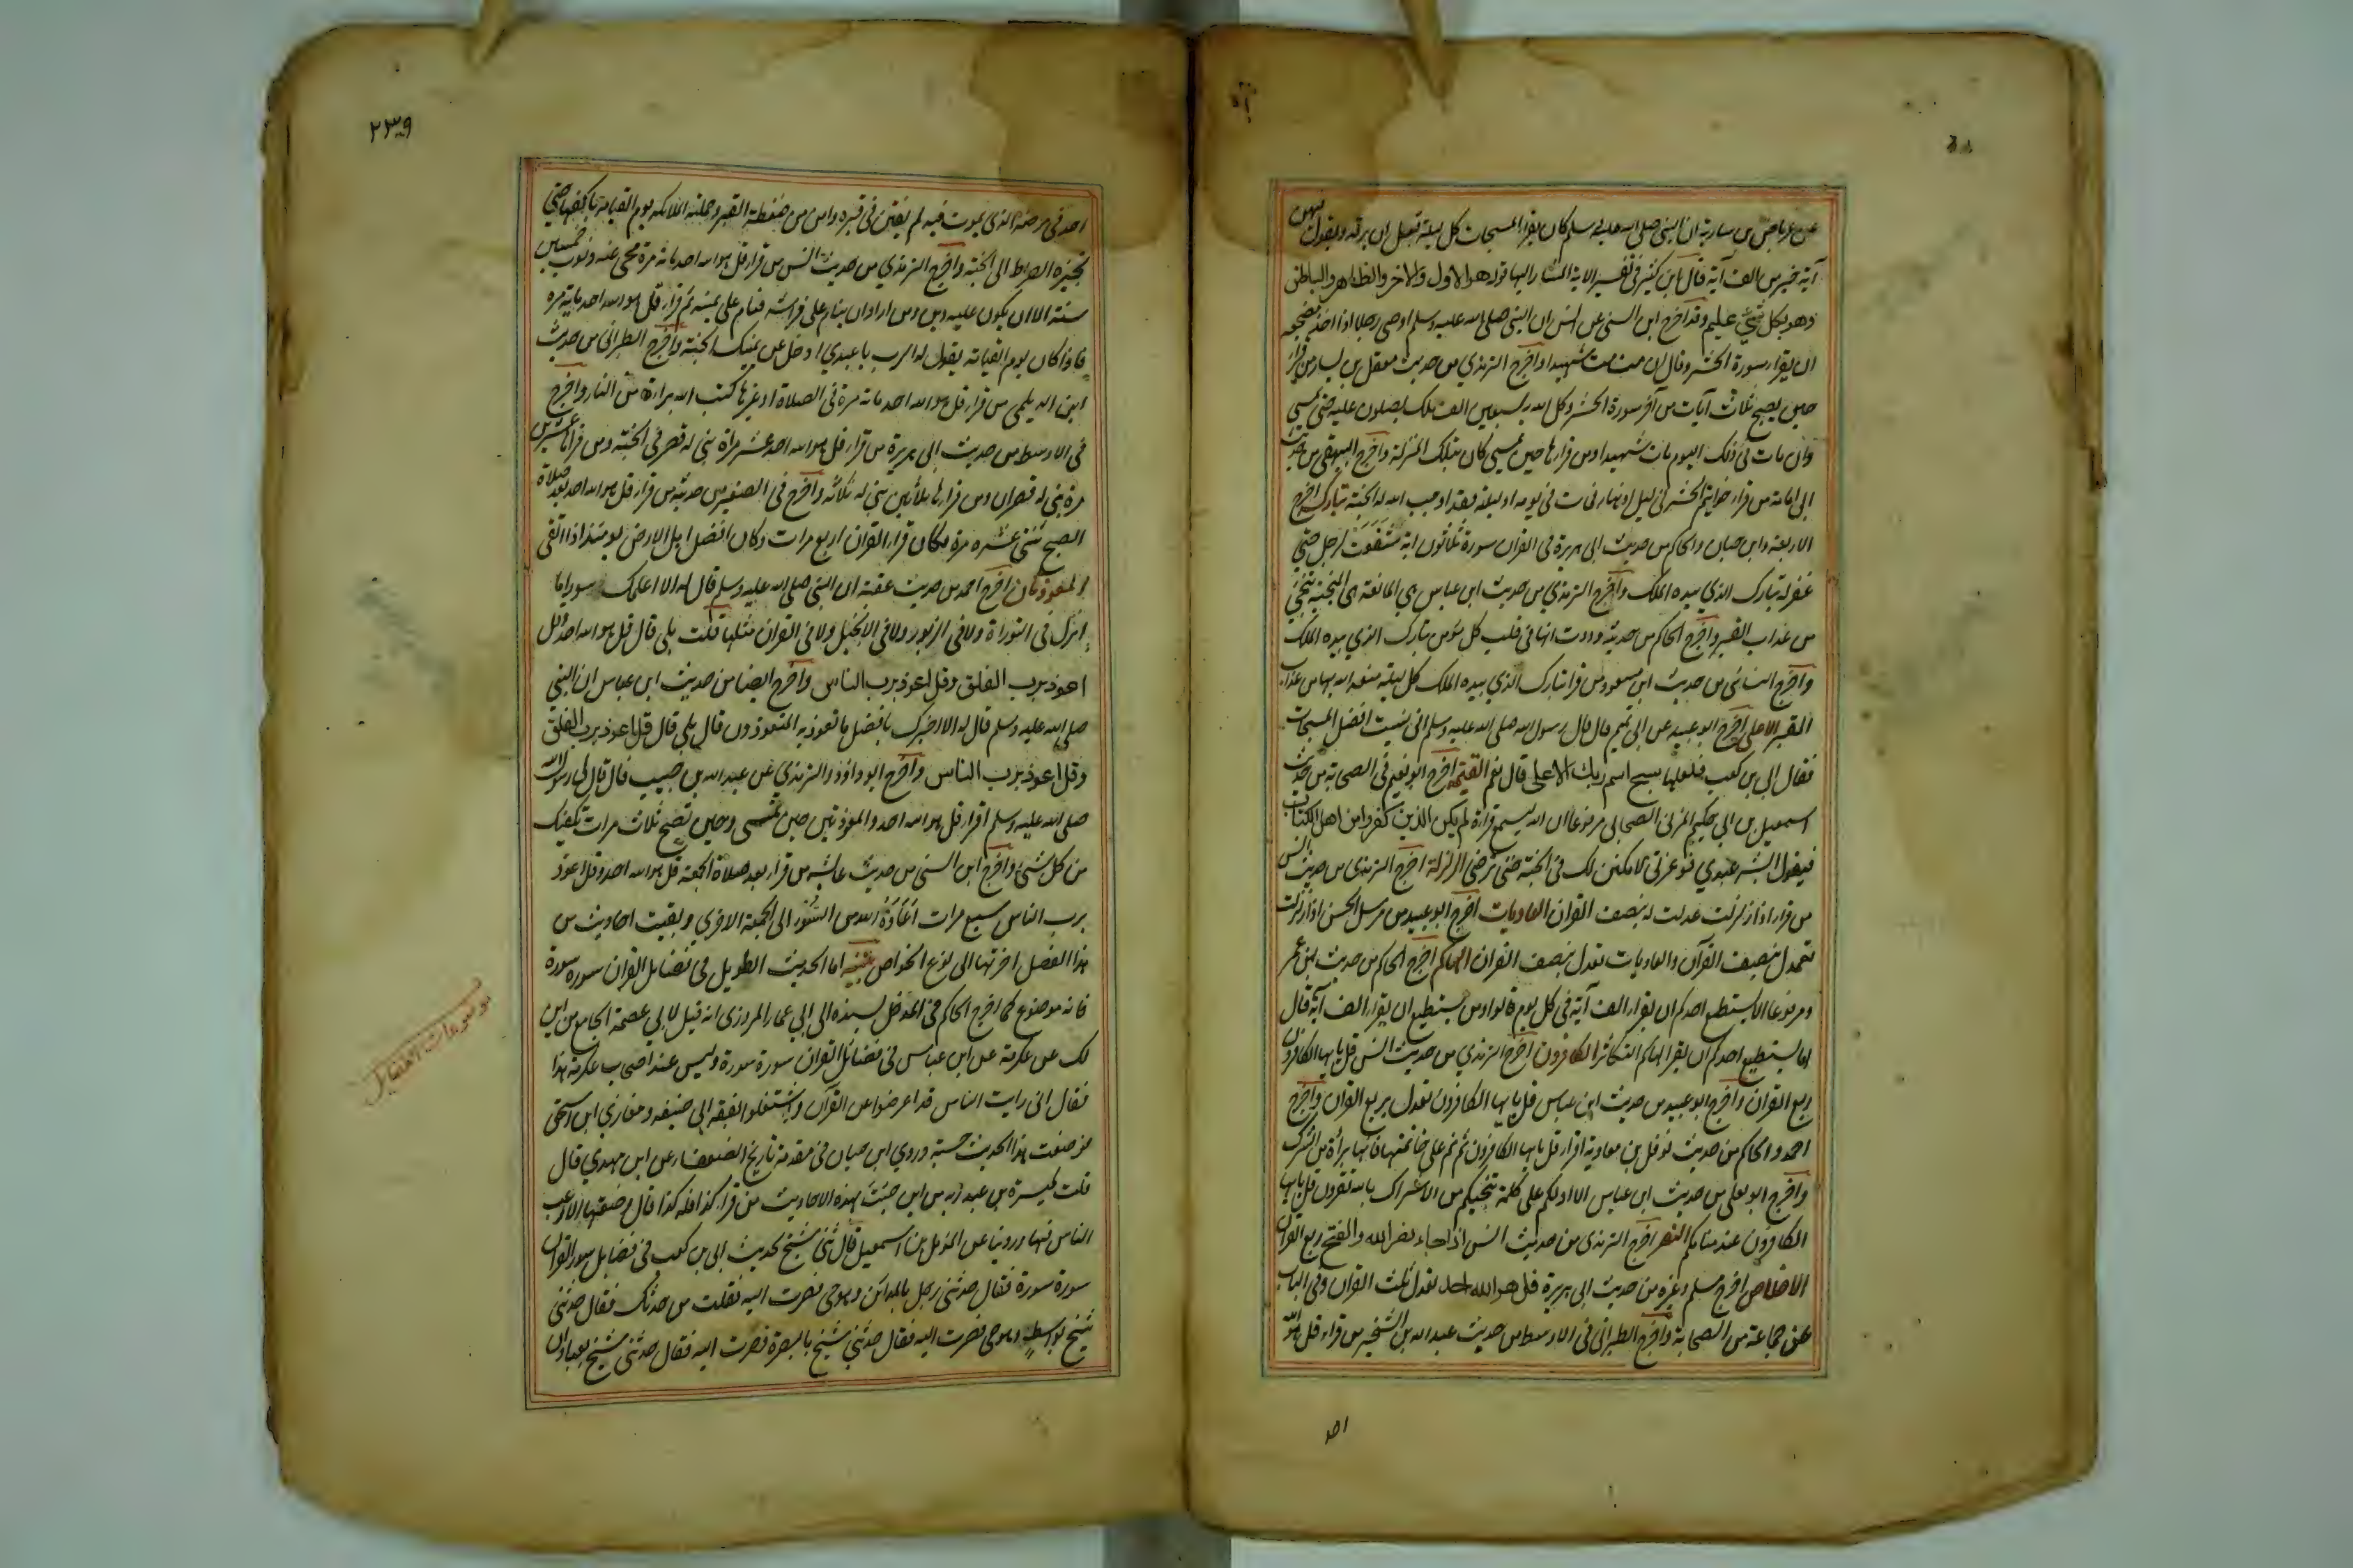 عن عرباض بن سارية ان النبي صلى الله عليه وسلم كان يقرا المسبحات كل ليلة قبل ان يرقد ويقول فيهن
آية خير من الف آية قال ابن كثير في تفسير الاية المشار اليها قوله هو الاول والاخر والظاهر والباطن
وهو بكل شئ عليم وقد اخرج ابن السني عن انس ان النبي صلى الله عليه وسلم اوصى رجلا اذا اخذ مضجعه
ان يقرا سورة الحشر وقال ان مت مت شهيدا واخرج الترمذي من حديث معقل بن يسار من قرا
حين يصبح ثلاث آيات من آخر سورة الحشر وكل الله به سبعين الف ملك يصلون عليه حتى يمسي
وان مات في ذلك اليوم مات شهيدا ومن قرأها حين يمسي كان بتلك المنزلة واخرج البيهقي من حديث
ابي امامة من قرا خواتيم الحشر في ليل او نهار فمات في يومه او ليلته فقد اوجب الله له الجنة تبارك اخرج
الاربعة وابن حبان والحاكم من حديث ابي هريرة في القران سورة ثلاثون اية شفعت لرجل حتى
غفر له تبارك الذي بيده الملك واخرج الترمذي من حديث ابن عباس هي المانعة هي المنجية تنجي
من عذاب القبر واخرج الحاكم من حديثه وددت انها في قلب كل مؤمن تبارك الذي بيده الملك
واخرج النسائي من حديث ابن مسعود من قرا تبارك الذي بيده الملك كل ليلة منعه الله بها من عذاب
القبر الاعلى اخرج ابو عبيد عن ابي تميم قال قال رسول الله صلى الله عليه وسلم اني نسيت افضل المسبحات
فقال ابي بن كعب فلعلها سبح اسم ربك الاعلى قال نعم القيمة اخرج ابو نعيم في الصحابة من حديث
اسمعيل بن ابي حكيم المزني الصحابي مرفوعا ان الله ليسمع قراءة لم يكن الذين كفروا من اهل الكتاب
فيقول ابشر عبدي فوعزتي لامكنن لك في الجنة حتى ترضى الزلزلة اخرج الترمذي من حديث انس
من قرا اذا زلزلت عدلت له بنصف القران العاديات اخرج ابو عبيد من مرسل الحسن اذا زلزلت
تعدل بنصف القرآن والعاديات تعدل بنصف القران الهاكم اخرج الحاكم من حديث ابن عمر
ومرفوعا الا يستطيع احدكم ان يقرا الف آية في كل يوم قالوا ومن يستطيع ان يقرا الف آية قال
اما يستطيع احدكم ان يقرا الهاكم التكاثر الكافرون اخرج الترمذي من حديث انس قل يايها الكافرون
ربع القران واخرج ابو عبيد من حديث ابن عباس قل يايها الكافرون تعدل بربع القران واخرج
احمد والحاكم من حديث نوفل بن معاوية اقرا قل يايها الكافرون ثم نم على خاتمتها فانها براءة من الشرك
واخرج ابو يعلى من حديث ابن عباس الا ادلكم على كلمة تنجيكم من الاشراك بالله تقرون قل يايها
الكافرون عند منامكم النصر اخرج الترمذي من حديث انس اذا جاء نصر الله والفتح ربع القران
الاخلاص اخرج مسلم وغيره من حديث ابي هريرة قل هو الله احد تعدل ثلث القران وفي الباب
عن جماعة من الصحابة واخرج الطبراني في الاوسط من حديث عبد الله بن الشخير من قراء قل هو الله
احد
٢٣٩
احد في مرضه الذي يموت فيه لم يفتن في قبره وامن من ضغطة القبر وحملته الملائكة يوم القيامة باكفها حتى
تجيزه الصراط الى الجنة واخرج الترمذي من حديث انس من قرا قل هو الله احد مائة مرة محي عنه ذنوب خمسين
سنة الا ان يكون عليه دين ومن اراد ان ينام على فراشه فنام على يمينه ثم قرا قل هو الله احد ماية مرة
فاذا كان يوم القيامة يقول له الرب يا عبدي ادخل عن يمينك الجنة واخرج الطبراني من حديث
ابن الديلمي من قرا قل هو الله احد مائة مرة في الصلاة او غيرها كتب الله براءة من النار واخرج
في الاوسط من حديث ابي هريرة من قرا قل هو الله احد عشر مراة بني له قصر في الجنة ومن قراها عشرين
مرة بني له قصران ومن قراها ثلاثين بني له ثلاثة واخرج في الصغير من حديثه من قرا قل هو الله احد بعد صلاة
الصبح ثنتي عشره مرة فكان قرا القران اربع مرات وكان افضل اهل الارض يومئذ اذا اتقى
المعوذتان اخرج احمد من حديث عقبة ان النبي صلى الله عليه وسلم قال له الا اعلمك سورا ما
انزل في التوراة ولا في الزبور ولا في الانجيل ولا في القران مثلها قلت بلى قال قل هو الله احد وقل
اعوذ برب الفلق وقل اعوذ برب الناس واخرج ايضا من حديث ابن عباس ان النبي
صلى الله عليه وسلم قال له الا اخبرك بافضل ما تعوذ به المتعوذون قال بلى قال قل اعوذ برب الفلق
وقل اعوذ برب الناس واخرج ابو داؤد والترمذي عن عبد الله بن حبيب قال قال لي رسول الله
صلى الله عليه وسلم اقرا قل هو الله احد والمعوذتين حين تمسى وحين تصبح ثلاث مرات تكفيك
من كل شئ واخرج ابن السني من حديث عايشه من قرا بعد صلاة الجمعة قل هو الله احد وقل اعوذ
برب الناس سبع مرات اعاذه الله من السوء الى الجمعة الاخرى وبقيت احاديث من
هذا الفضل اخرتها الى نوع الخواص تنبيه اما الحديث الطويل في فضايل القران سورة سورة
فانه موضوع كما اخرج الحاكم في المدخل بسنده الى ابي عمار المروزي انه قيل لابي عصمة الجامع من اين
لك عن عكرمة عن ابن عباس في فضائل القران سورة سورة وليس عند اصحاب عكرمة هذا
فقال اني رايت الناس قد اعرضوا عن القرآن واشتغلوا بفقه ابي حنيفه ومغازي ابن اسحق
فوضعت هذا الحديث حسبة وروي ابن حبان في مقدمة تاريخ الضعفاء عن ابن مهدي قال
قلت لميسرة بن عبد ربه من اين جئت بهذه الاحاديث من قرا كذا فله كذا قال وضعتها ارغب
الناس فيها وروينا عن المؤمل بن اسمعيل قال ثني شيخ بحديث ابي بن كعب في فضايل سور القران
سورة سورة فقال حدثني رجل بالمداين وهو حي فصرت اليه فقلت من حدثك فقال حدثني
شيخ بواسط وهو حي فصرت اليه فقال حدثني شيخ بالبصرة فصرت اليه فقال حدثني شيخ بعبادان
موضوعات الفضايل